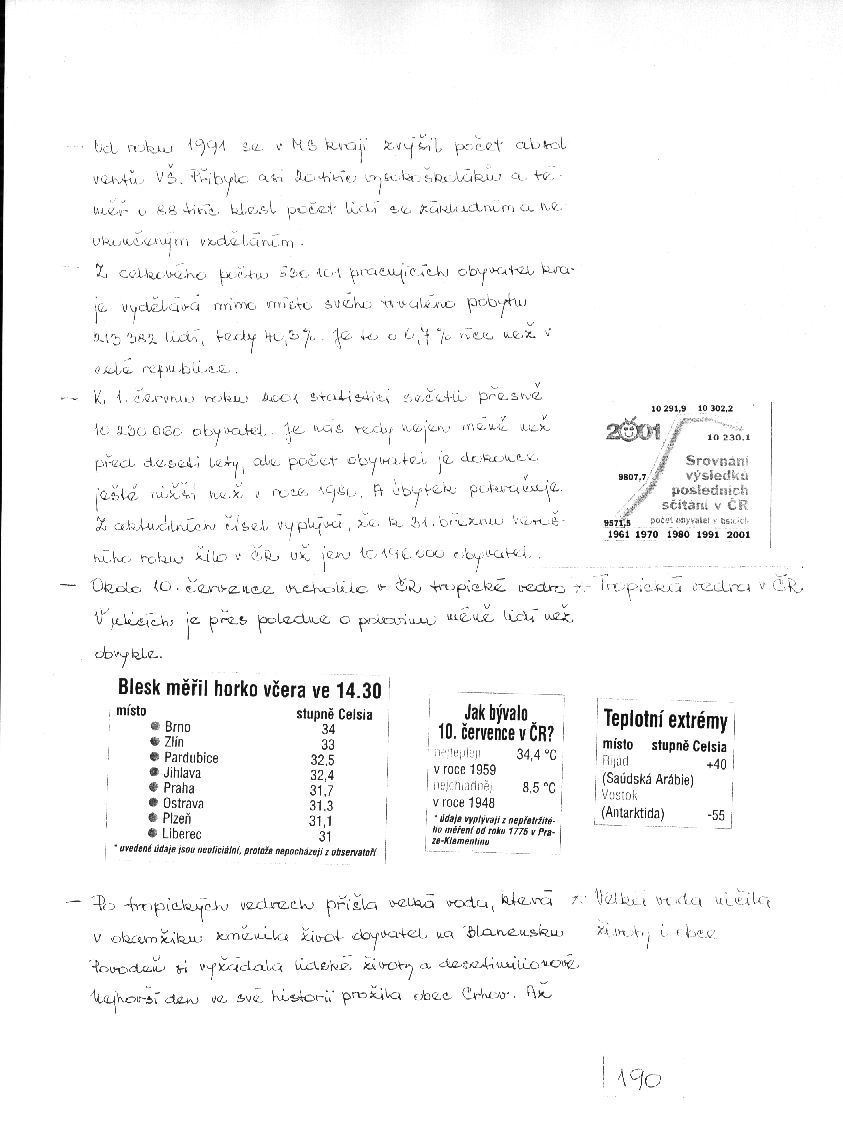 — Od roku 1991 se v MS kraji zvýšil počet absol
ventů VŠ. Přibylo asi 20 tisíc vysokoškoláků a té-
měř o 88 tisíc klesl počet lidí se základním a ne
ukončeným vzděláním.
— Z celkového počtu 530 101 pracujících obyvatel kra-
je vydělává mimo místo svého trvalého pobytu
213 382 lidí, tedy 40,3%. Je to o 6,7% více než v
celé republice.
— K 1. červnu roku 2001 statistici sečetli přesně
10 230 060 obyvatel. Je nás tedy nejen méně než
před deseti lety, ale počet obyvatel je dokonce
ještě nižší než v roce 1980. A úbytek pokračuje.
Z aktuálních čísel vyplývá, že k 31. březnu letoš-
ního roku žilo v ČR už jen 10 196 000 obyvatel.
10 291,9 10 302,2
2001
10 230,1
Srovnání
9807,7
výsledků
posledních
sčítání v ČR
9571,5 počet obyvatel v tisících
1961 1970 1980 1991 2001
— Okolo 10. července vrcholilo v ČR tropické vedro
V ulicích je přes poledne o polovinu méně lidí než
obvykle.
Tropická vedra v ČR
Blesk měřil horko včera ve 14.30
místo stupně Celsia
Brno 34
Zlín 33
Pardubice 32,5
Jihlava 32,4
Praha 31,7
Ostrava 31,3
Plzeň 31,1
Liberec 31
* uvedené údaje jsou neoficiální, protože nepocházejí z observatoří
Jak bývalo
10. července v ČR?
nejtepleji 34,4 °C
v roce 1959
nejchladněj 8,5 °C
v roce 1948
* údaje vyplývají z nepřetržité-
ho měření od roku 1775 v Pra-
ze-Klementinu
Teplotní extrémy
místo stupně Celsia
Rijád +40
(Saúdská Arábie)
Vostok
(Antarktida) -55
— Po tropických vedrech přišla velká voda, která
v okamžiku změnila život obyvatel na Blanensku
Povodeň si vyžádala lidské životy a desetimilionové
Nejhorší den ve své historii prožila obec Crhov. Až
Velká voda ničila
životy i obce
190